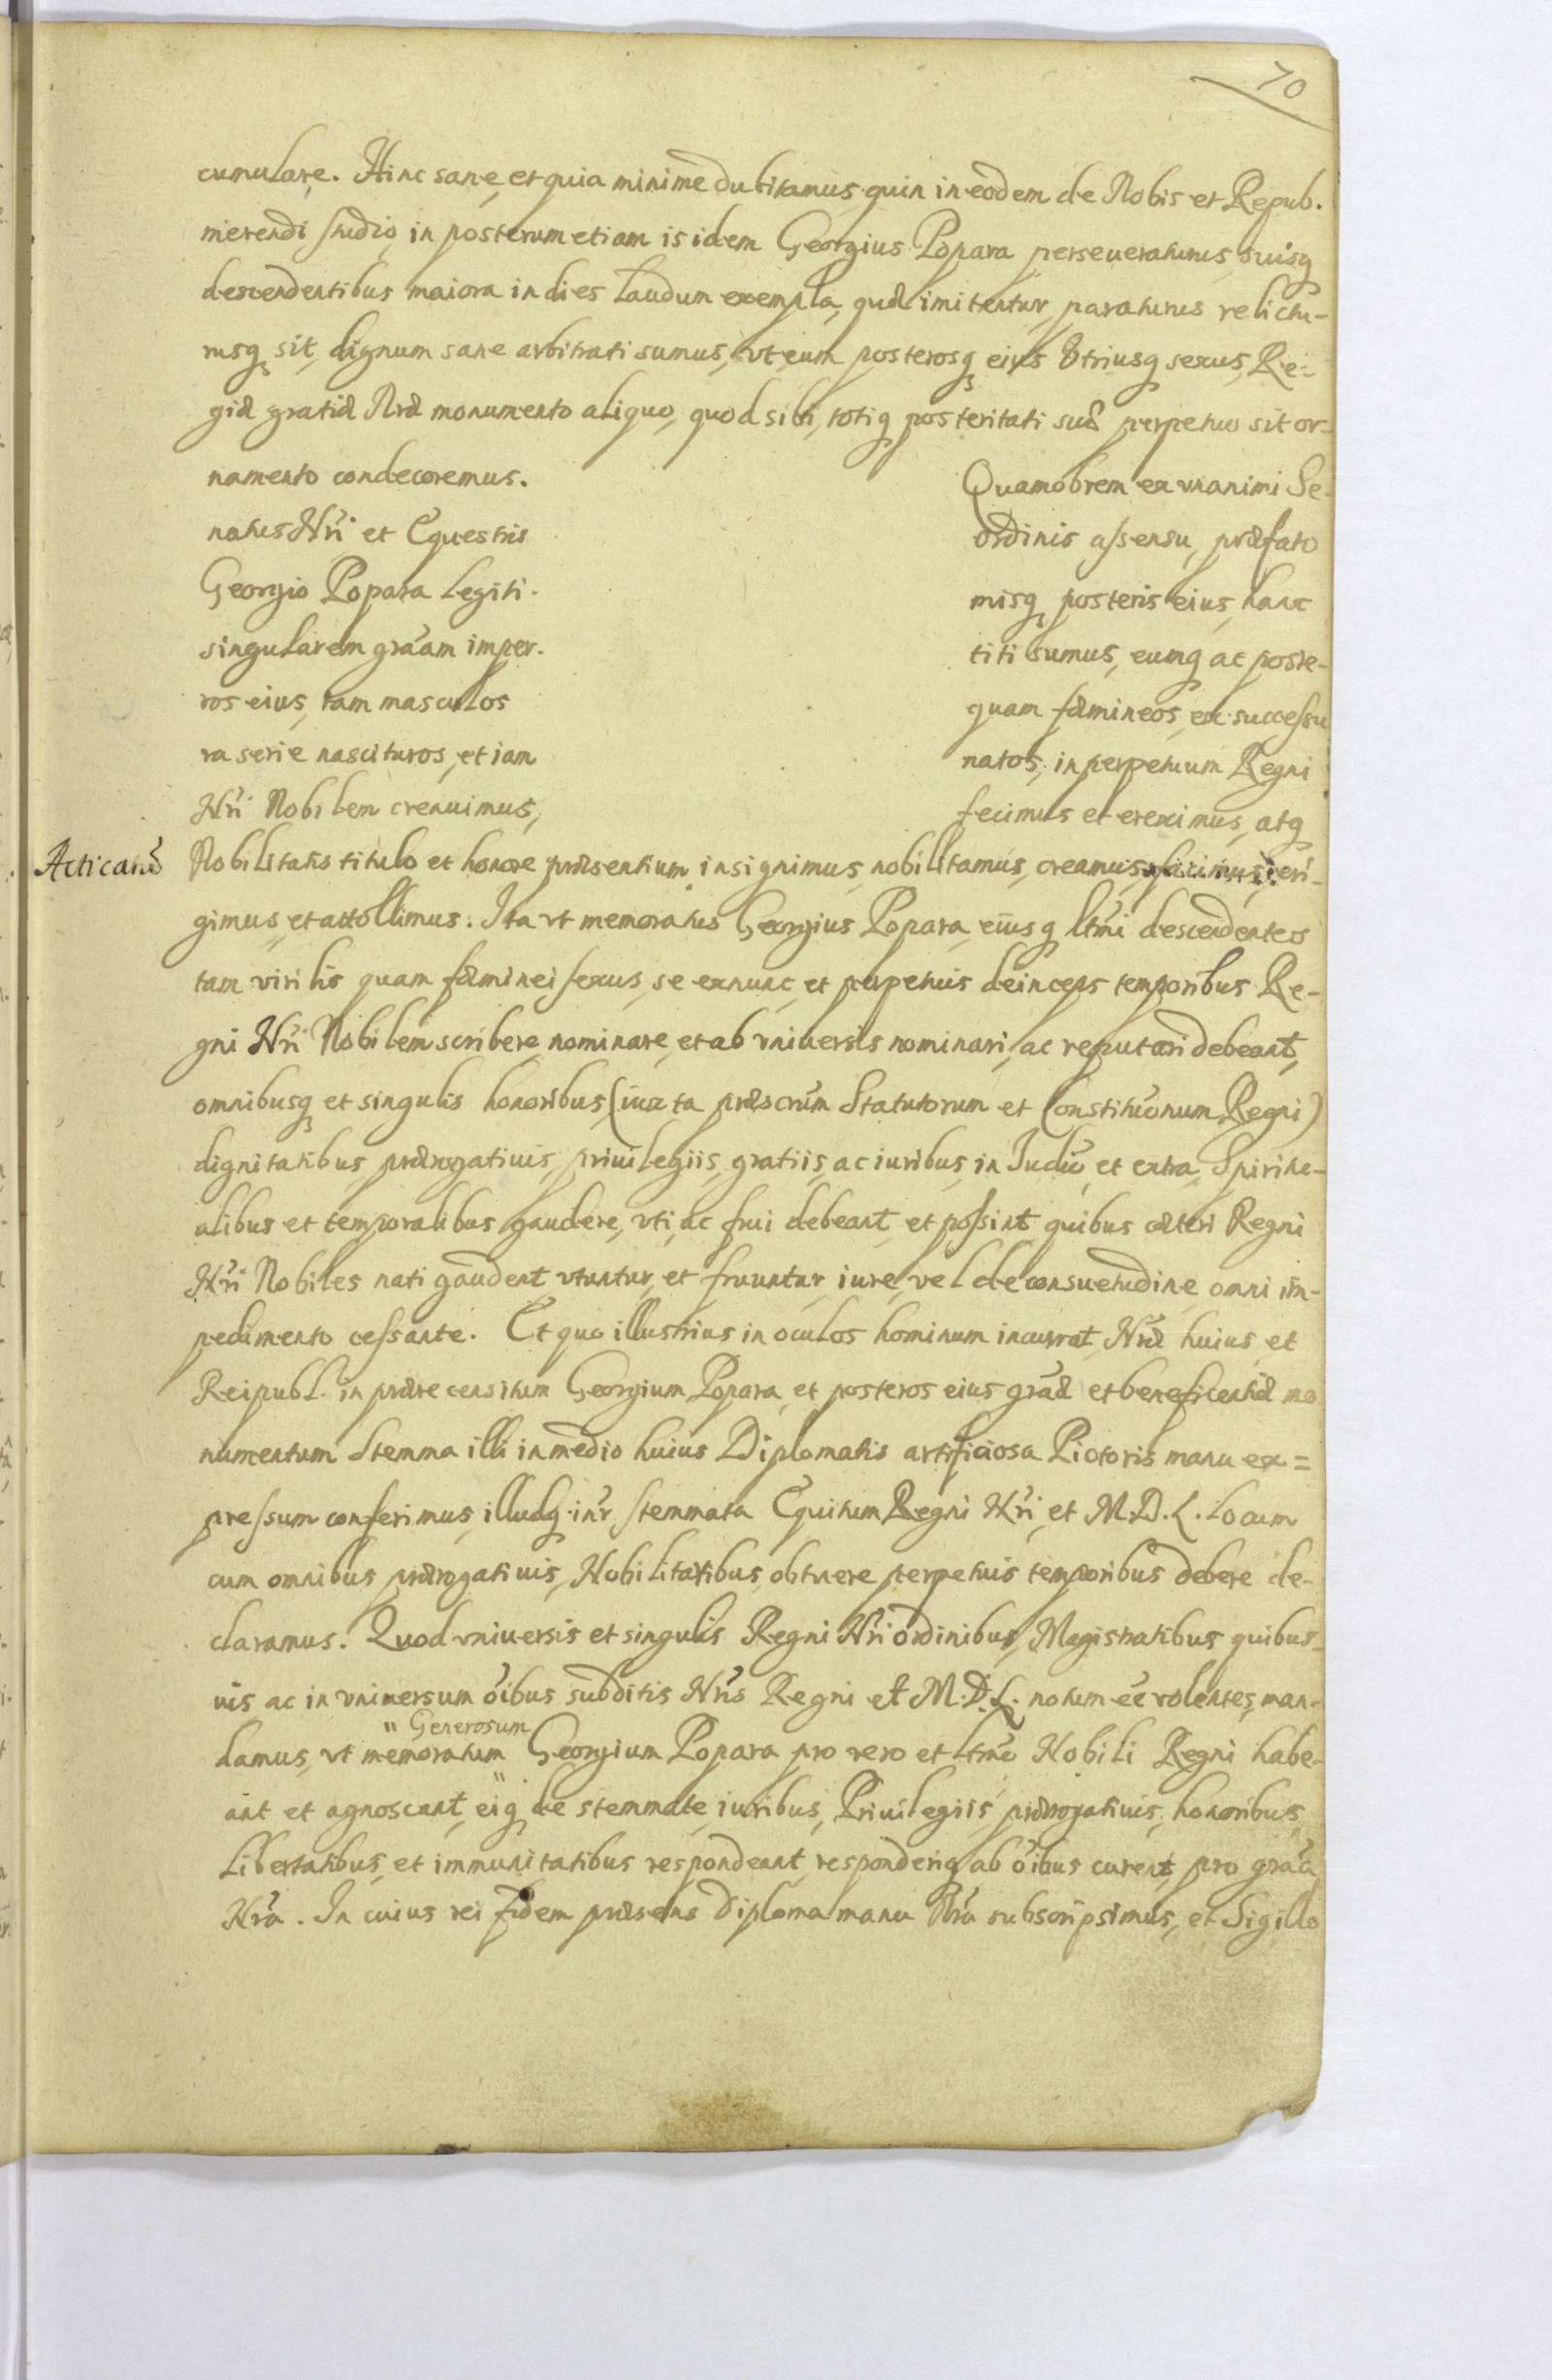 70
cumulare. Hinc sane, et quia minime dubitamus quin in eodem de Nobis et Repub.
merendi studio in posterum etiam is idem Georgius Popara perseueraturus, suisq
descendentibus maiora in dies laudum exempla, quæ imitentur, paraturus relictu-
rusq sit, dignum sane arbitrati sumus, vt eum posterosq eius Vtriusq sexus, Re-
giæ gratiæ Nræ monumento aliquo, quod sibi, totiq posteritati suæ perpetuo sit or-
namento condecoremus. Quamobrem ex vnanimi Se-
natus Nri et Equestris ordinis assensu, præfato
Georgio Popara legiti- misq posteris eius, hanc
singularem gra͠am imper- titi sumus, eumq ac poste-
ros eius, tam masculos quam fæmineos, ex successu
ra serie nascituros, et iam natos, in perpetuum Regni
Nri Nobilem creauimus, fecimus et ereximus, atq
Acticand
Nobilitatis titulo et honore præsentium insignimus, nobilitamus, creamus, facimus, eri-
gimus, et attollimus. Ita vt memoratus Georgius Popara, eiusq ltmi descendentes
tam virilis quam fæminei sexus, se ex nunc, et perpetuis deinceps temporibus Re-
gni Nri Nobilem scribere, nominare, et ab vniuersis nominari, ac reputari debeant,
omnibusq et singulis honoribus, (iuxta præscrũm Statutorum et Constitũonum Regni)
dignitatibus, prærogatiuis, priuilegiis, gratiis, ac iuribus, in Iudio, et extra, Spiritu-
alibus et temporalibus gaudere, vti, ac frui debeant, et possint, quibus cæteri Regni
Nri Nobiles nati gaudent, vtuntur, et fruuntur, iure, vel de consuetudine, omni im-
pedimento cessante. Et quo illustrius in oculos hominum incurrat, Nræ huius, et
Reipubl. in prærecensitum Georgium Popara, et posteros eius gra͠æ et beneficentiæ mo
numentum Stemma illi in medio huius Diplomatis artificiosa Pictoris manu ex=
pressum conferimus, illudq intr stemmata Equitum Regni Nri, et M.D.L. locum
cum omnibus prærogatiuis, Nobilitatibus, obtinere perpetuis temporibus debere de-
claramus. Quod vniuersis et singulis Regni Nri ordinibus, Magistratibus quibus-
uis, ac in vniuersum oibus subditis Nris Regni et M.D.L. notum eẽ volentes, man-
Generosum
damus, vt memoratum Georgium Popara pro vero et ltmo Nobili Regni habe-
ant et agnoscant, eiq de stemmate, iuribus, Priuilegiis, prærogatiuis, honoribus,
Libertatibus, et immunitatibus respondeant, responderiq ab oibus curent, pro gra͠a
Nra. In cuius rei fidem præsens Diploma manu Nra subscripsimus, et Sigillo